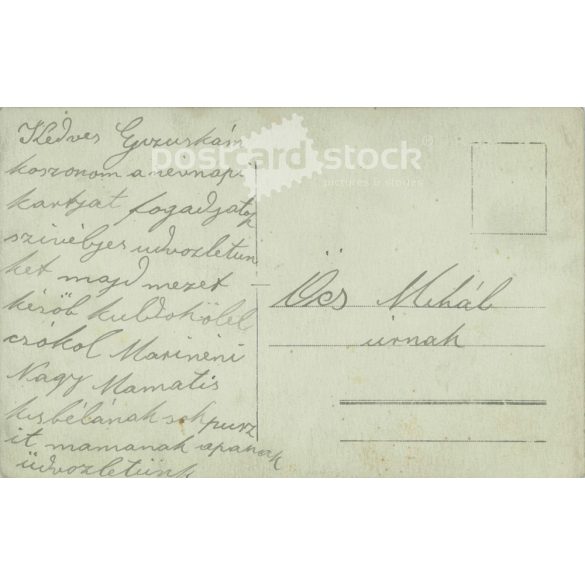 Kedves Gyuruskám
koszonom a nevnapi
kartját fogadjatok
szivébjes udvozletün
ket majd mezet
késöb kuldok ölel
csókol Marinéni
Nagy Mamatis
kisbélának sok pusz
it mamanak apanak
üdvozletünk
Öcs Mihál
úrnak
postcard stock
pictures & stories